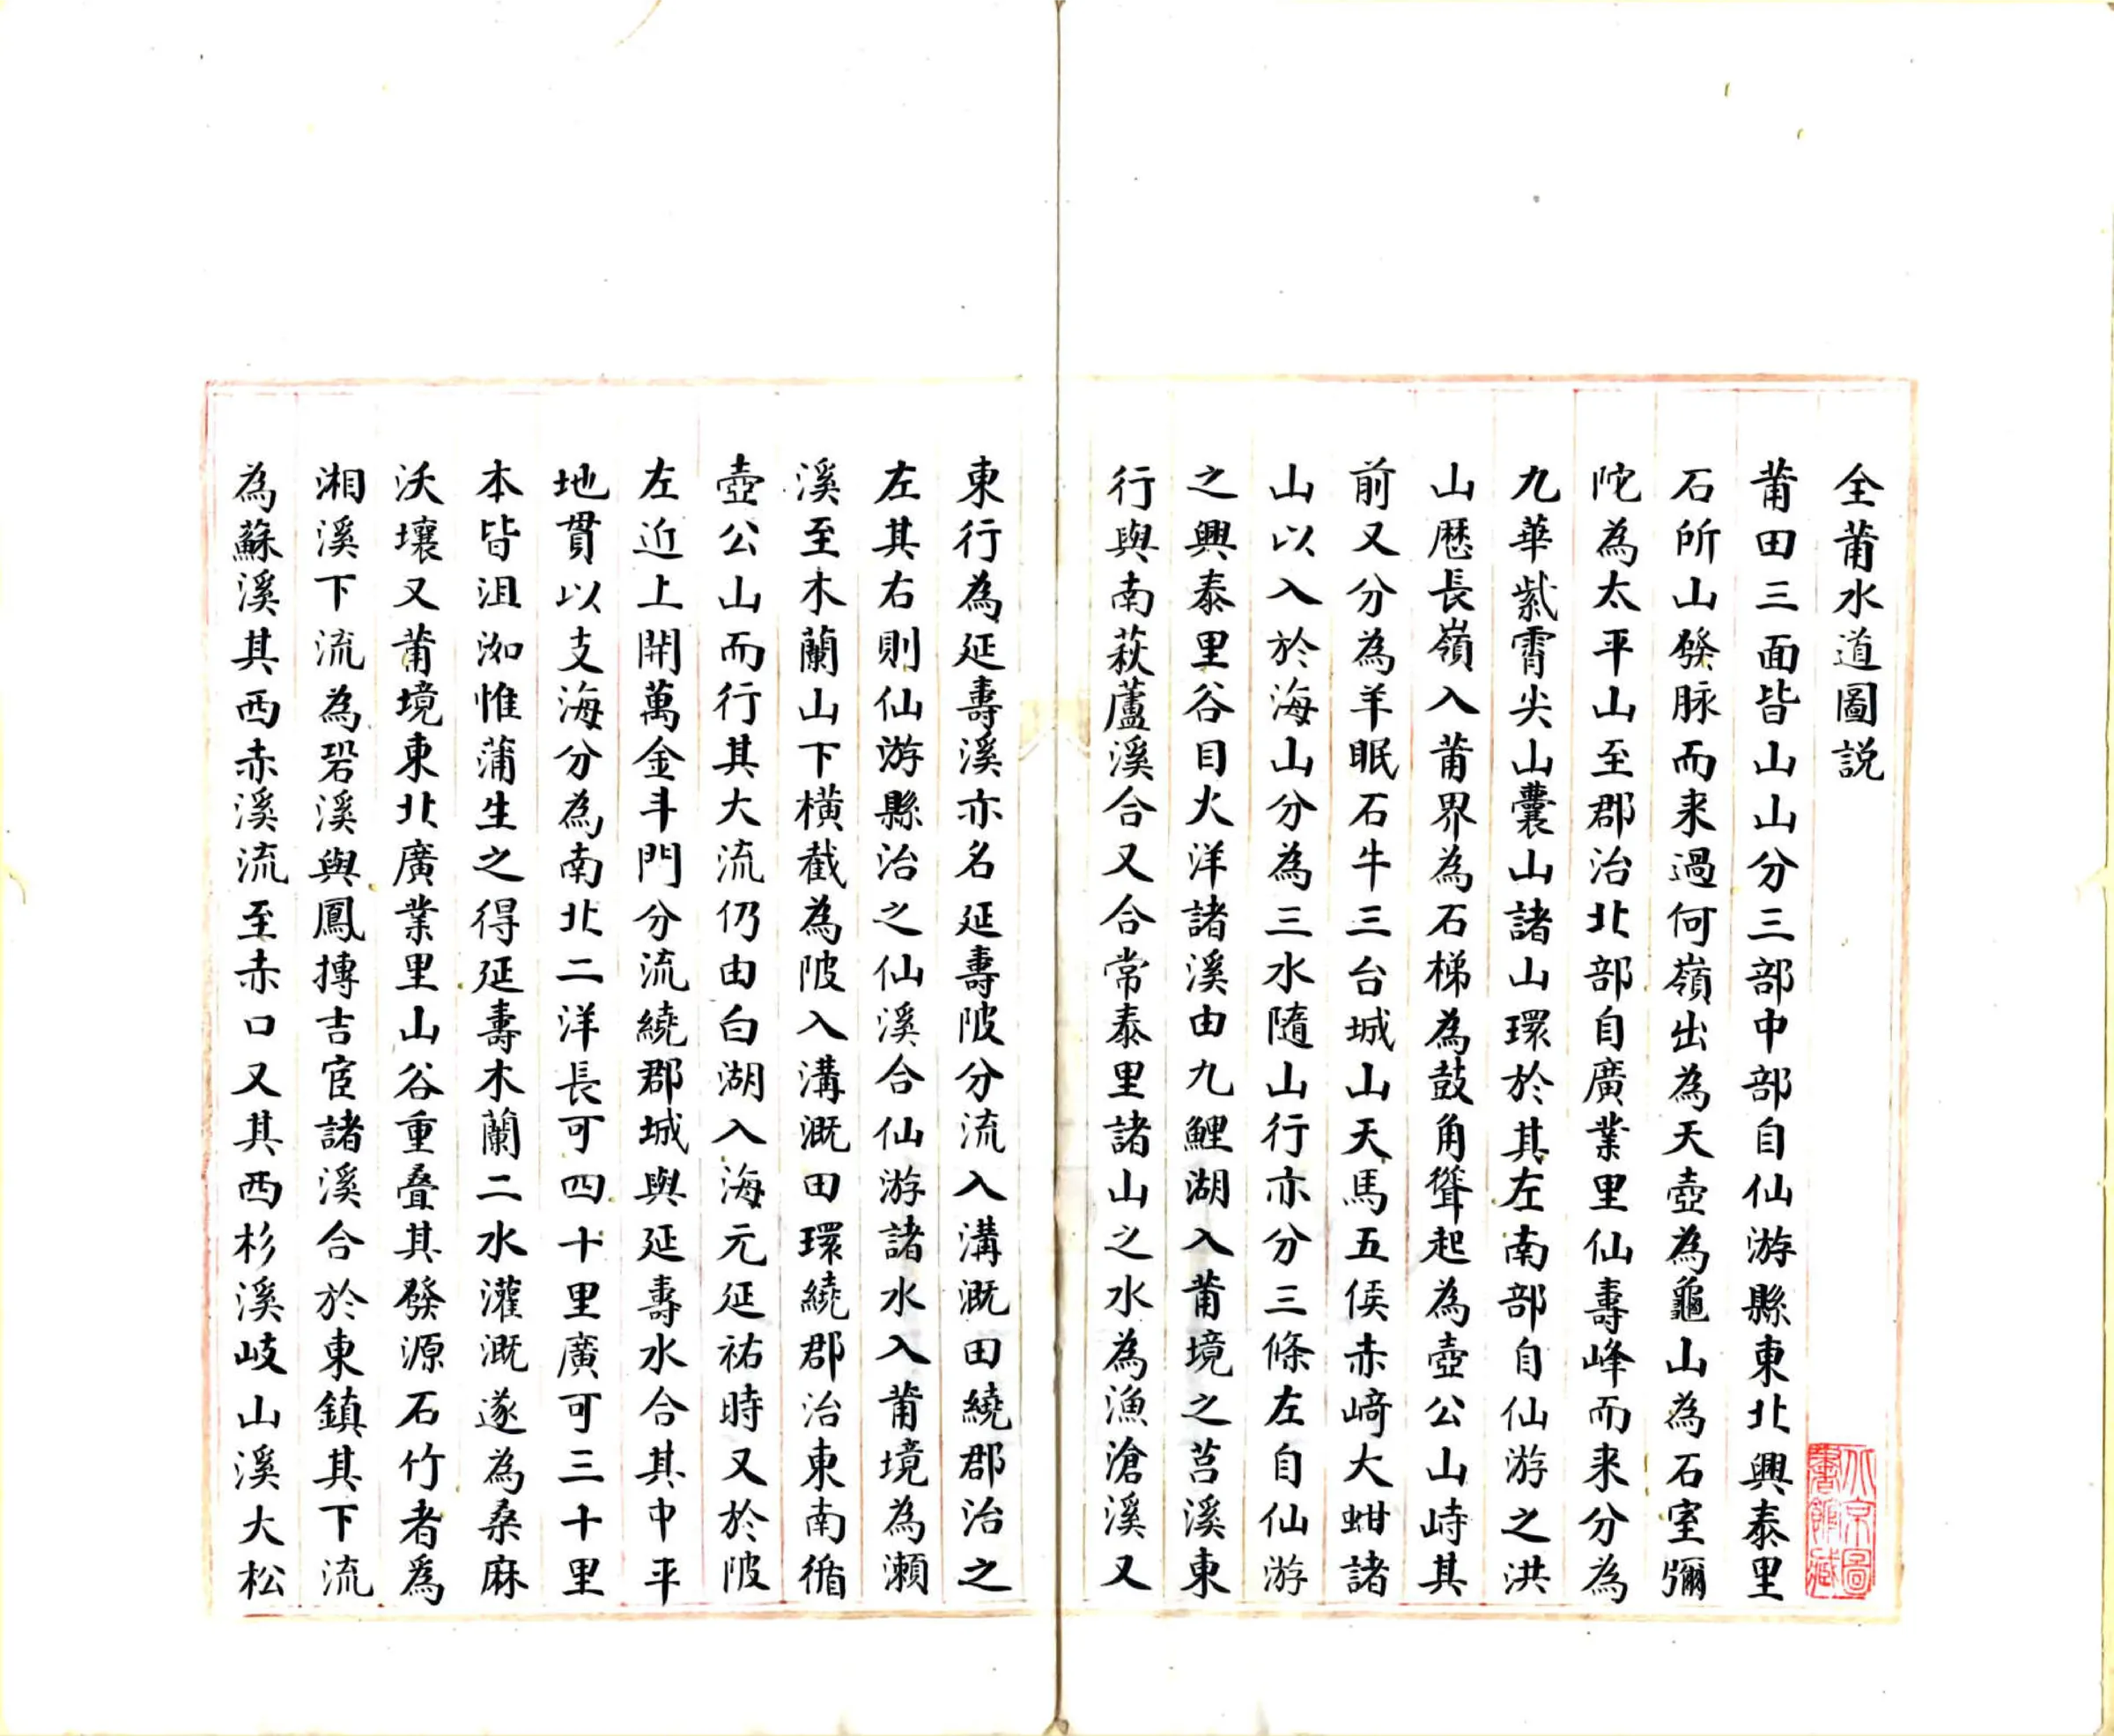 全莆水道圖説
莆田三面皆山山分三部中部自仙游縣東北興泰里
石所山發脉而来過何嶺出為天壺為龜山為石室彌
陀為太平山至郡治北部自廣業里仙壽峰而来分為
九華紫霄尖山囊山諸山環於其左南部自仙游之洪
山歷長嶺入莆界為石梯為鼓角聳起為壺公山峙其
前又分為羊眠石牛三台城山天馬五侯赤﨑大蚶諸
山以入於海山分為三水隨山行亦分三條左自仙游
之興泰里谷目火洋諸溪由九鯉湖入莆境之莒溪東
行與南萩蘆溪合又合常泰里諸山之水為漁滄溪又
東行為延壽溪亦名延壽陂分流入溝溉田繞郡治之
左其右則仙游縣治之仙溪合仙游諸水入莆境為瀨
溪至木蘭山下横截為陂入溝溉田環繞郡治東南循
壺公山而行其大流仍由白湖入海元延祐時又於陂
左近上開萬金斗門分流繞郡城與延壽水合其中平
地貫以支海分為南北二洋長可四十里廣可三十里
本皆沮洳惟蒲生之得延壽木蘭二水灌溉遂為桑麻
沃壤又莆境東北廣業里山谷重疊其發源石竹者為
湘溪下流為碧溪與鳳摶吉宦諸溪合於東鎮其下流
為蘇溪其西赤溪流至赤口又其西杉溪岐山溪大松
北京圖
書館藏